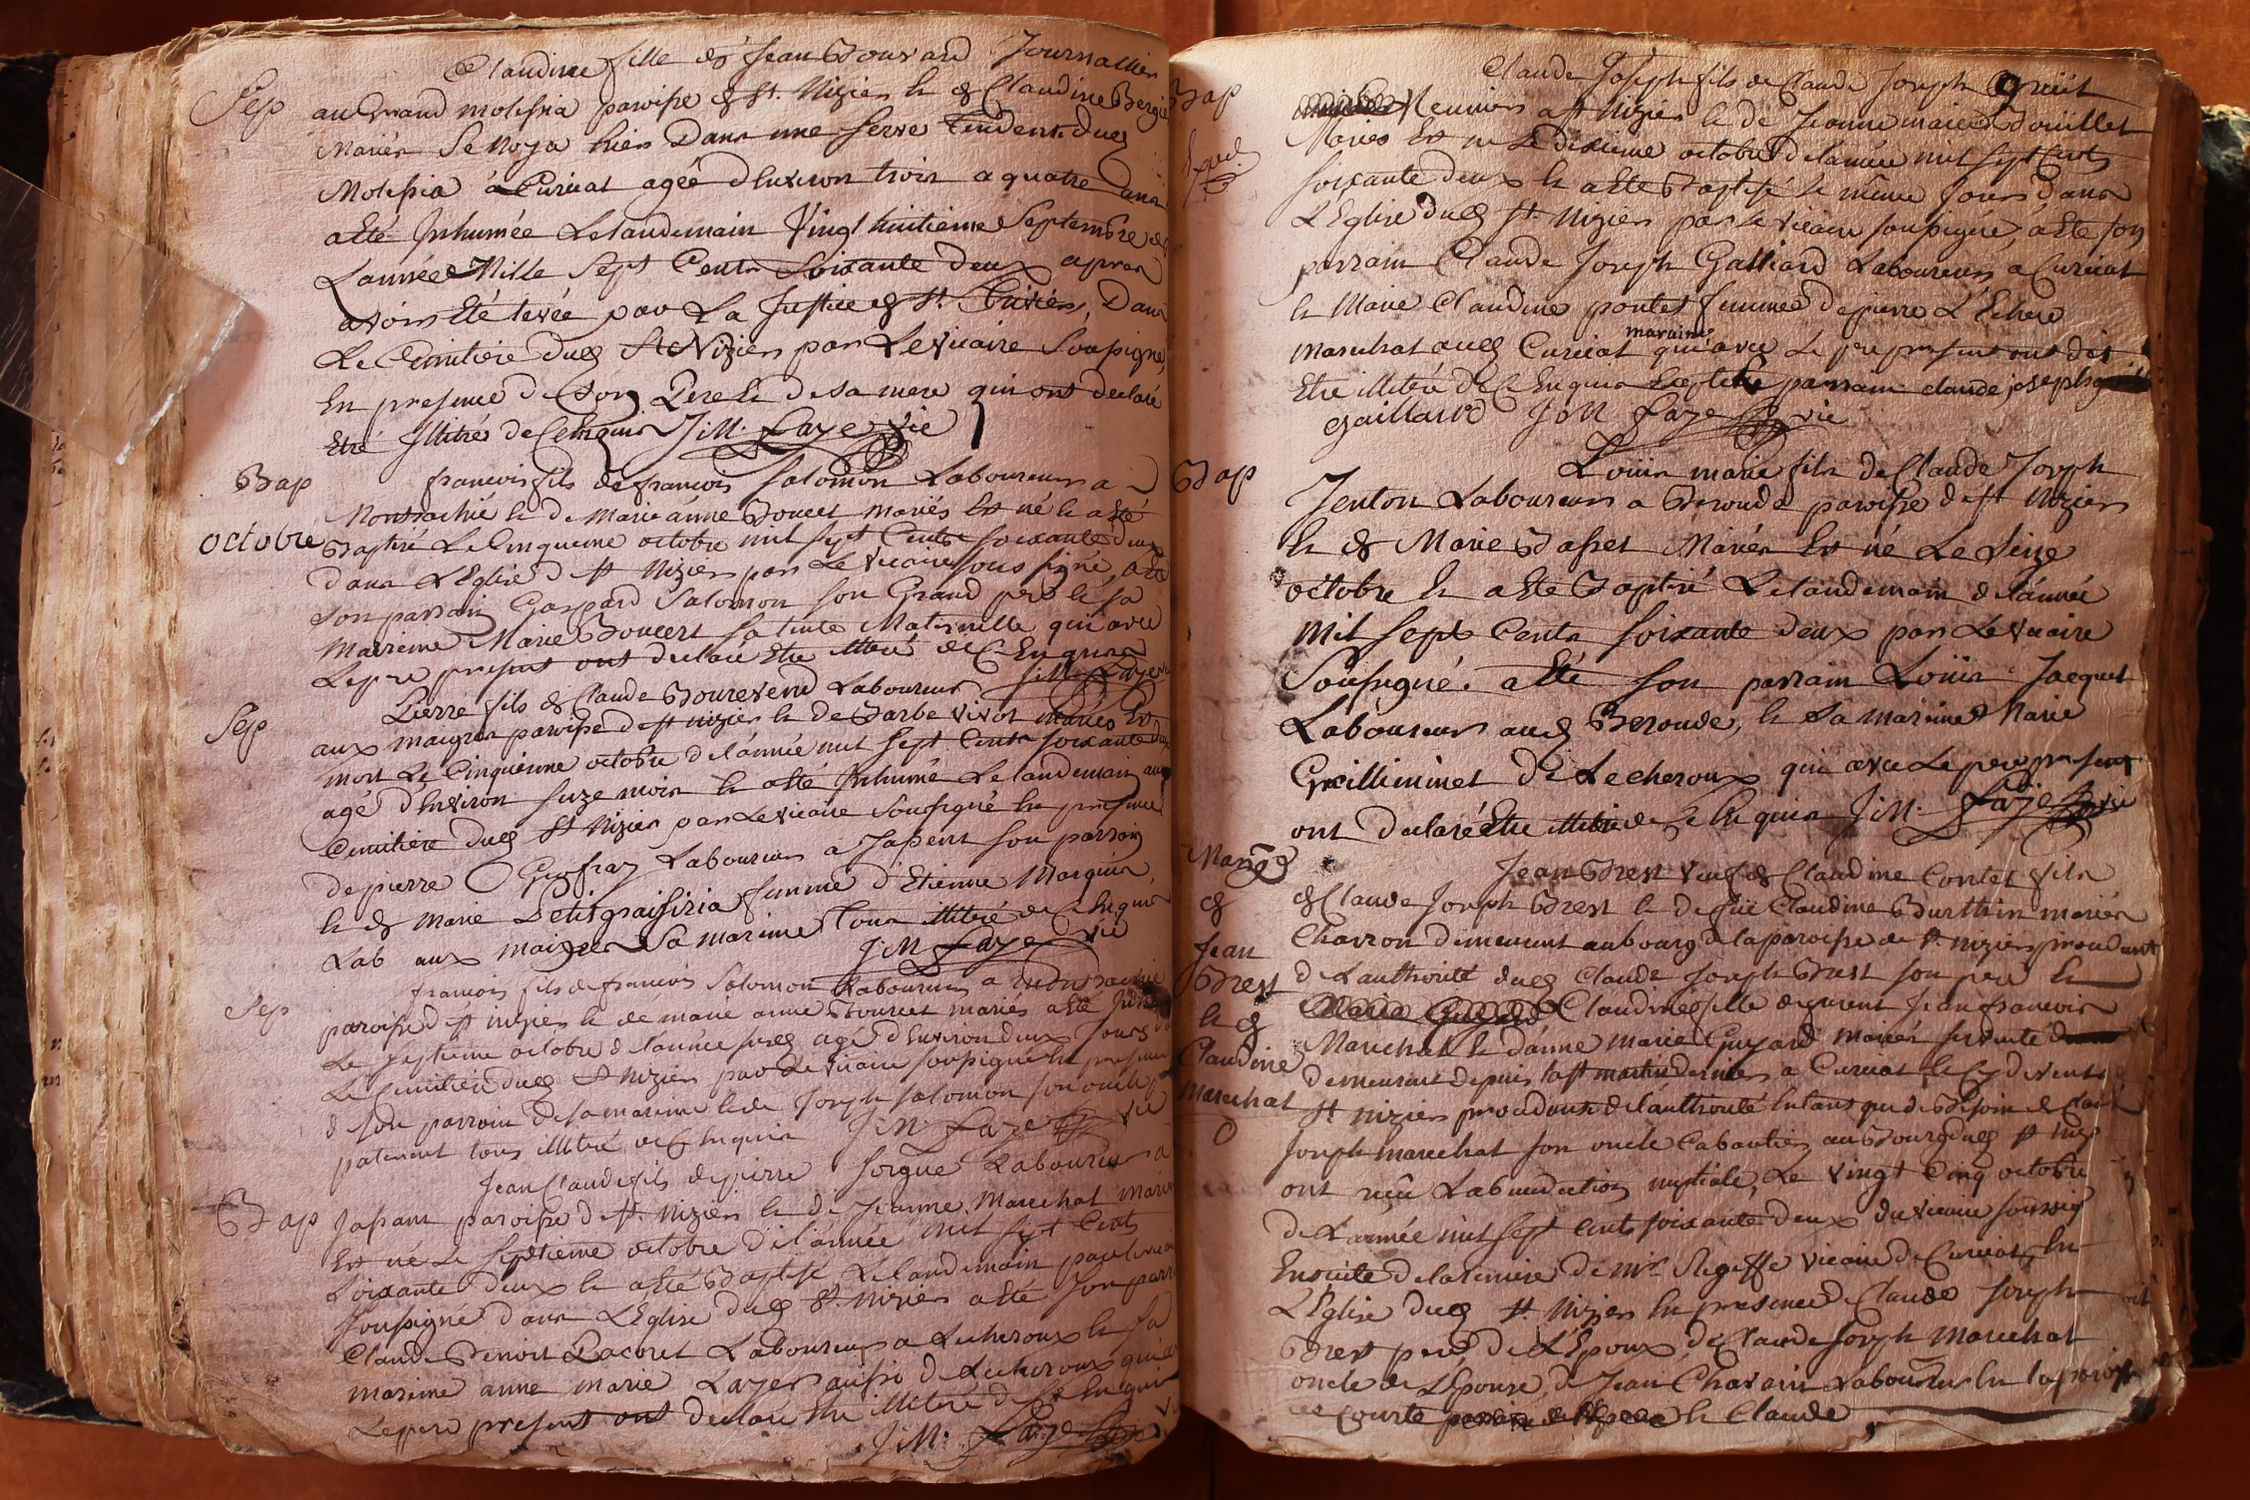 Claudine fille de Jean Bouvard Journallier
Sep
au Grand molissia paroisse de St. Nizier & de Claudine
Mariés Se Noya hier Dans une serve
Molissia à Curciat agée d'Environ trois a quatre ans
a Eté Inhumée Le landemain Vingt huitieme Septembre de
L'année Mille Sept Cents Soixante deux apres
avoir été levée par La Justice de St. Trivier, Dans
Le Cimitière dud St Nizier par Le Vicaire Soussigné,
En presence de Son Pere & de sa mere qui ont declaré
Etre Illitré de Ce Enquis J:M: Faye vic
Bap
francois fils de francois Salomon Laboureur a
Montrachié & de Marie anne Boucet mariés Est né & a été
Octobre
Baptisé Le Cinquieme octobre mil sept Cents soixante deux
dans L'Eglise de St Nizier par Le Vicaire sous signé, a été
son parrain Gaspard Salomon son Grand pere & sa
Marrine Marie Boucet sa tante Maternelle qui avec
Le pre present ont declaré Etre Illitré de C Enquis J:M: Faye
Sep
Pierre fils de Claude Bourevend Laboureur
aux maigres paroisse de St nizier & de Barbe Vivot mariés Est
mort Le Cinquieme octobre de l'année mil sept Cents soixante deux
agé d'Environ seize mois & a été Inhumé Le landemain au
Cimitière dud St Nizier par Le vicaire Soussigné En presence
de pierre Geofray Laboureur a Japent son parrain
& de Marie Petitgraisiria femme d'Etienne Marquis,
Lab aux maigres Sa marrine Tous illitré de Ce Enquis
J:M Faye vic
Sep
francois fils de francois Salomon Laboureur a
paroisse de St nizier & de marie anne Boucet mariés a été
Le Septieme octobre de l'année susd agé d'Environ deux Jours
Le Cimitière dud St Nizier par Le Vicaire soussigné En presence
de son parrain de sa marrine & de Joseph Salomon son oncle
paternel tous illitré de C Enquis J:M Faye vic
Jean Claude fils de pierre Sorgue Laboureur a
Bap
Japans paroisse de St. Nizier & de Jeanne Marechal
Est né Le Septieme octobre de l'année mil sept Cents
Soixante deux & a été Baptisé Le landemain par le
Soussigné dans L'Eglise dud St. Nizier a été son
Claude Benoit Pacoret Laboureur a Lecheroux & sa
marrine anne marie Layer aussi de Lecheroux qui
Le pere present ont declaré Etre illitré de Ce Enquis
J:M: Faye
Claude Joseph fils de Claude Joseph
Bap
Meunier a St Nizier & de Jeanne marie Douillet
Mariés Est né Le dixieme octobre de l'année mil sept Cents
soixante deux & a été Baptisé le même Jour dans
L'Eglise dud St. Nizier par Le Vicaire soussigné, a été son
parrain Claude Joseph Galliard Laboureur a Curciat
& Marie Claudine poulet femme de pierre L'Echere
maraine
Marechal aud Curciat qui avec Le pre present ont dit
Etre illitré de C Enquis Excepté le parrain claude joseph
gaillard J:M Faye vic
Bap
Louis marie fils de Claude Joseph
Jenton Laboureur a Beroude paroisse de St Nizier
& de Marie Basset Mariés Est né Le Seize
octobre & a été Baptisé Le landemain de l'année
mil Sept Cents Soixante deux par Le Vicaire
Soussigné. a été son parrain Louis Jacquet
Laboureur aud Beroude, & Sa Marrine Marie
Guilliminet de Lecheroux qui avec Le pere present
ont declaré Etre illitré de Ce Enquis J:M: Faye vic
Mariage
de
Jean
Brest
& de
Claudine
Marechal
Jean Brest Veuf de Claudine Contet fils
de Claude Joseph Brest & de fue Claudine Burthin mariés
Charron demeurant au bourg & la paroisse de St. nizier procedant
de L'authorité dud Claude Joseph Brest son pere &
Claudine fille de Jean francois
Marechal & d'anne marie Guyard mariés servante
demeurant depuis la St martin dernier a Curciat & Cy devent a
St nizier procedante de l'authorité En tant que de Besoin de Claude
Joseph marechal son oncle Cabaretier au Bourg dud St niz
ont reçû La benediction nuptiale, Le Vingt Cinq octobre
de L'année mil sept cents soixante deux du vicaire soussig
Ensuite de la remise de Mr. Vicaire de Curciat, En
L'Eglise dud St. Nizier En presence de Claude Joseph
Brest pere de L'Epoux de Claude Joseph Marechal
oncle de L'Epouse, de Jean Chavain Laboureur En la paroisse
de Courte & Claude